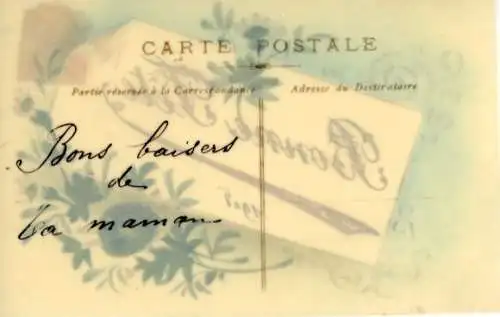 CARTE POSTALE
Partie réservée à la Correspondance
Adresse du Destinataire
Bonne Fête
1908
Bons baisers
de
ta maman